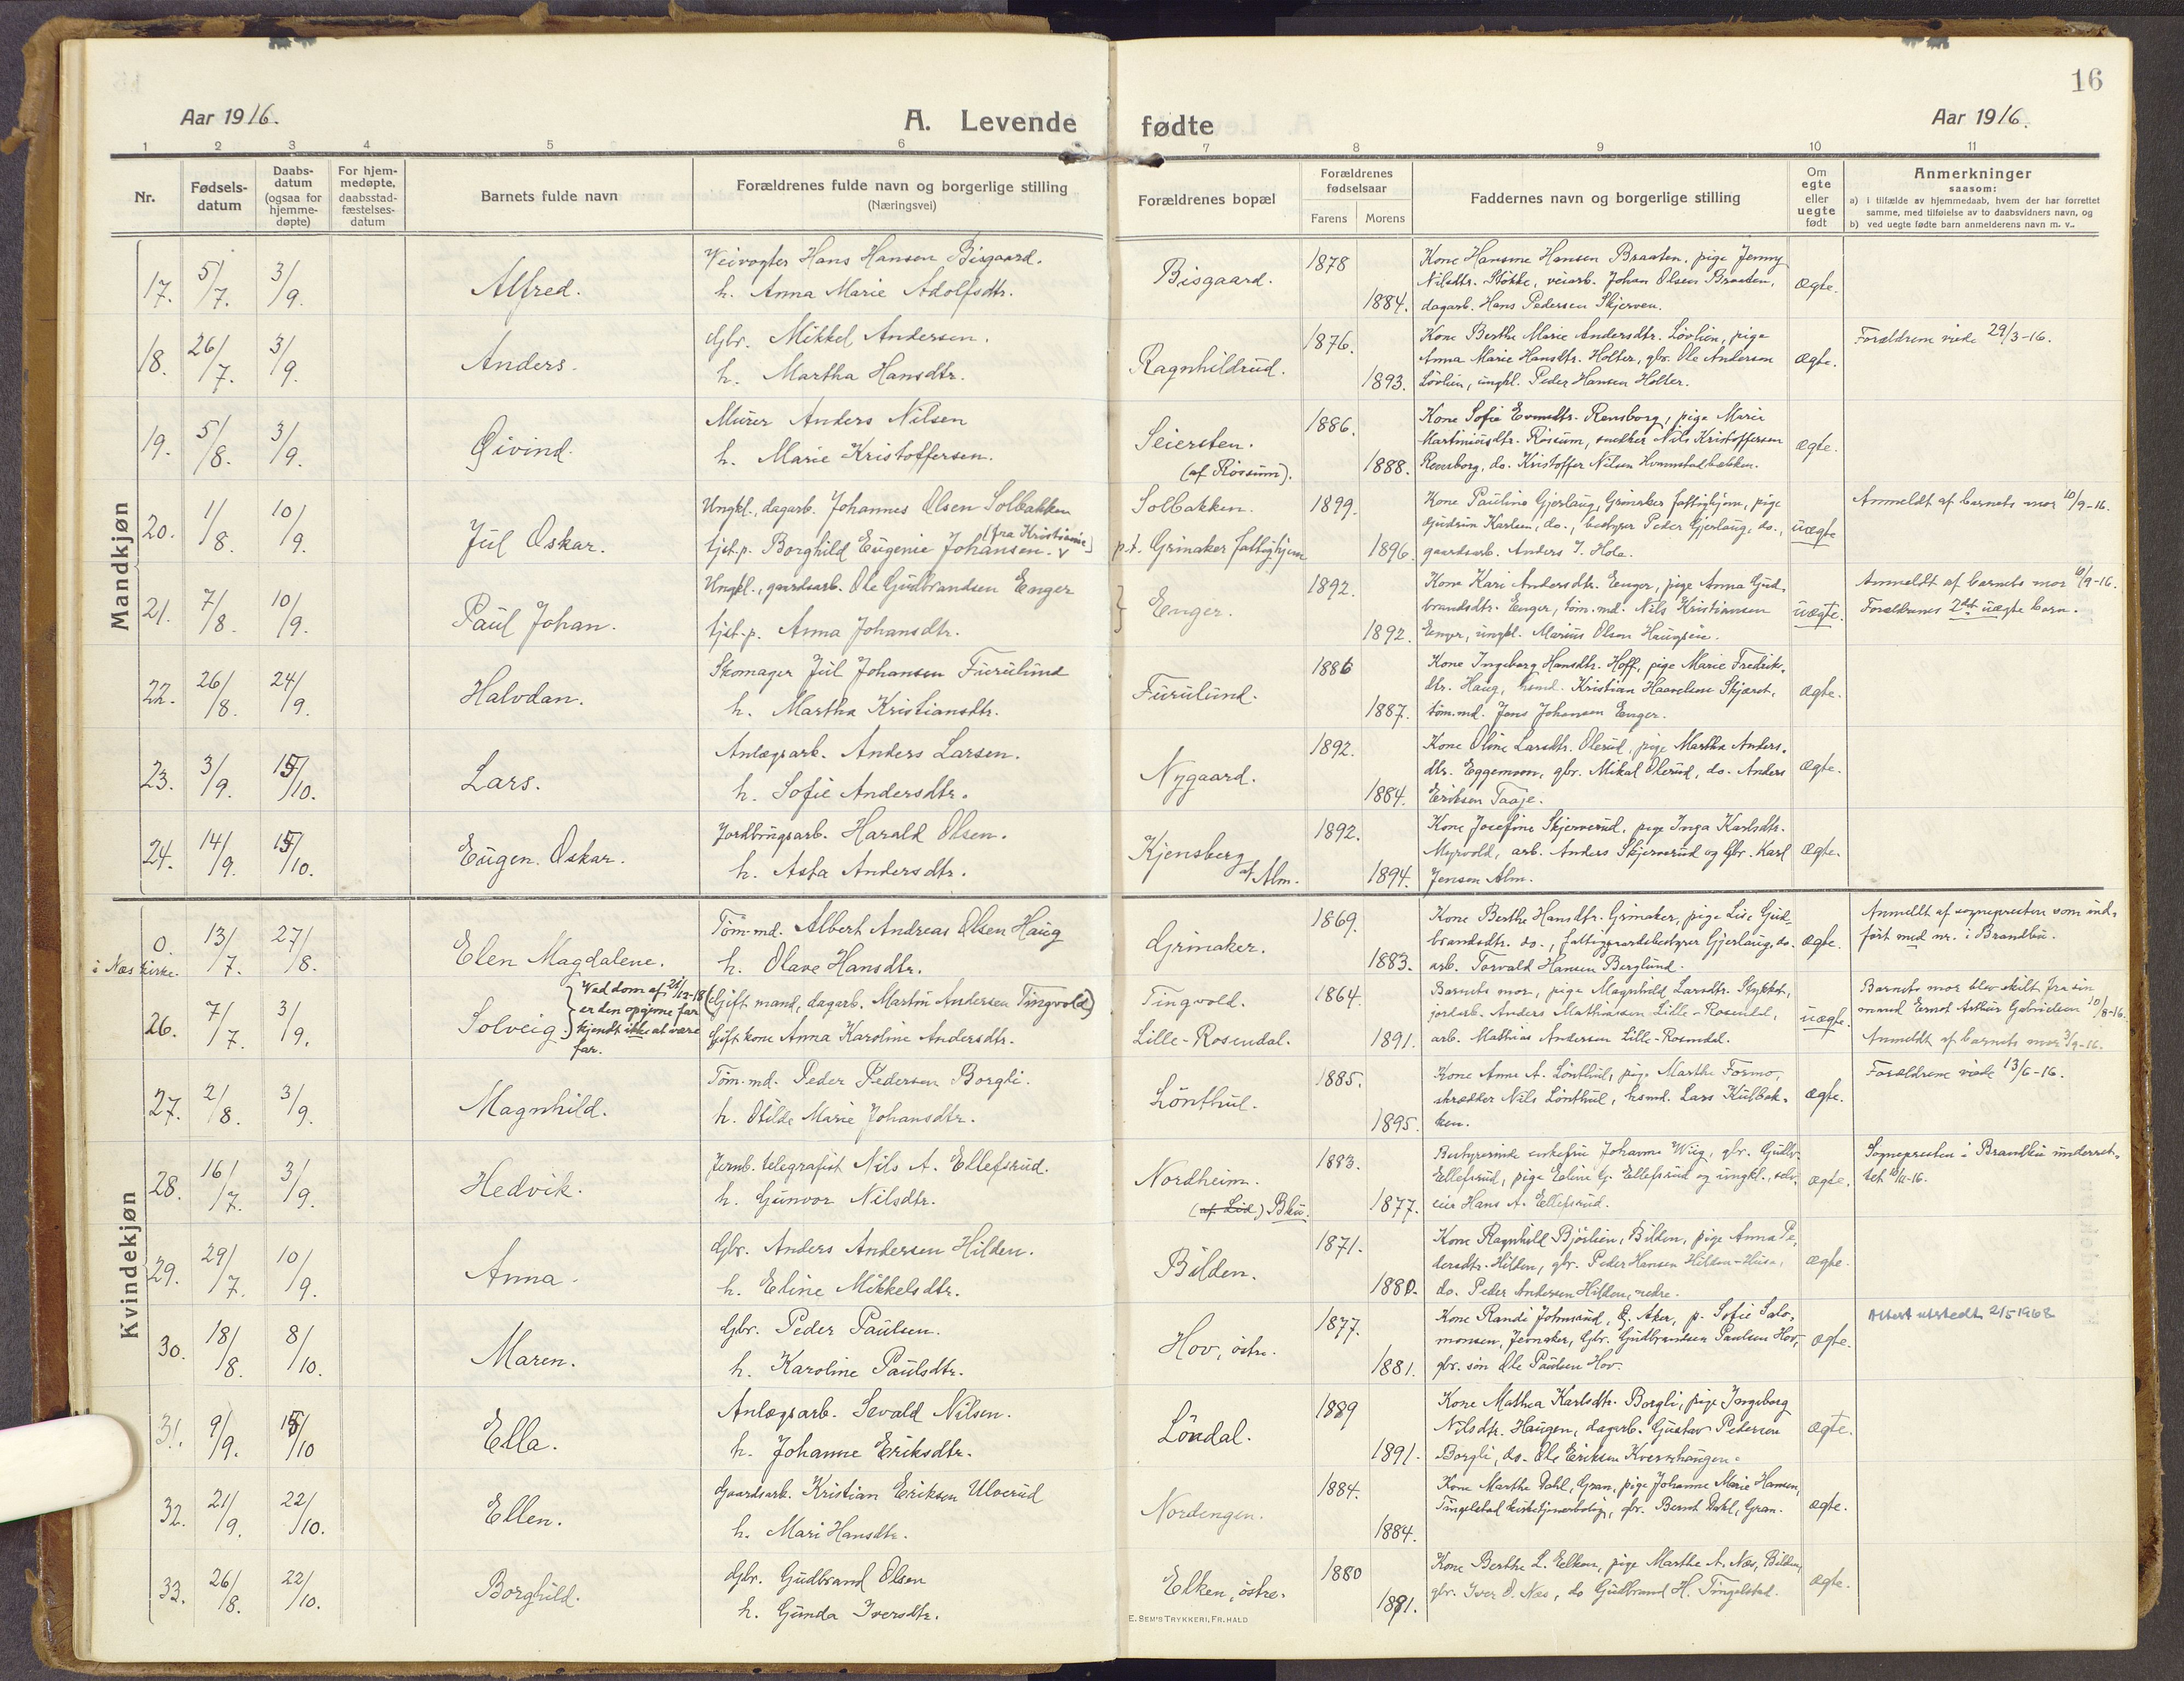 16
Aar 1916.
A. Levende fødte
Aar 1916.
1 2 3 4 5 6 7 8 9 10 11
Nr.
Fødsels-
datum
Daabs-
datum
(ogsaa for
hjemme-
døpte)
For hjem-
medøpte,
daabsstad-
fæstelses-
datum
Barnets fulde navn
Forældrenes fulde navn og borgerlige stilling
(Næringsvei)
Forældrenes bopæl
Forældrenes
fødselsaar
Farens Morens
Faddernes navn og borgerlige stilling
Om
egte
eller
uegte
født
Anmerkninger
saasom:
a) i tilfælde av hjemmedaab, hvem der har forrettet
samme, med tilføielse av to daabsvidners navn, og
b) ved uegte fødte barn anmelderens navn m. v..
Mandkjøn
17. 5/7. 3/9. Alfred.
Veivogter Hans Hansen Bisgaard.
h. Anna Marie Adolfsdtr.
Bisgaard. 1878 1884.
Kone Hansine Hansen Braaten, pige Jenny
Nilsdtr. Stökke, veiarb. Johan Olsen Braaten,
dagarb. Hans Pedersen Skjerven.
ægte.
18. 26/7. 3/9. Anders.
Gbr. Mikkel Andersen.
h. Martha Hansdtr.
Ragnhildrud. 1876. 1893.
Kone Berthe Marie Andersdtr. Lövlien, pige
Anna Marie Hansdtr. Holter, gbr. Ole Andersen
Lövlien, ungkl. Peder Hansen Holter.
ægte.
Forældrene viede 29/3-16.
19. 5/8. 3/9. Øivind.
Murer Anders Nilsen
h. Marie Kristoffersen.
Seiersten.
(af Rösum).
1886. 1888.
Kone Sofie Rensborg, pige Marie
Martiniusdtr. Rösum, snekker Nils Kristoffersen
Rensborg, do. Kristoffer Nilsen
ægte.
20. 1/8. 10/9. Jul Oskar.
Ungkl., dagarb. Johannes Olsen Solbakken
tjst.p. Borghild Eugenie Johansen. (fra Kristiania)
Solbakken.
p.t. Grinaker fattighjem
1899. 1896.
Kone Pauline Gjerlaug, Grinaker fattighjem, pige
Gudrun Karlsen, do., bestyrer Peder Gjerlaug, do.,
gaardsarb. Anders J. Hole.
uægte
Anmeldt af barnets mor 10/9-16.
21. 7/8. 10/9. Paul Johan.
Ungkl., gaardsarb. Ole Gudbrandsen Enger
tjst.p. Anna Johansdtr.
Enger. 1892. 1892.
Kone Kari Andersdtr. Enger, pige Anna Gud-
brandsdtr. Enger, töm.md. Nils Kristiansen
Enger, ungkl. Marius Olsen
uægte.
Anmeldt af barnets mor 10/9-16.
Forældrenes 2det uægte barn.
22. 26/8. 24/9. Halvdan.
Skomager Jul Johansen Furulund
h. Martha Kristiansdtr.
Furulund. 1886 1887.
Kone Ingeborg Hansdtr. Hoff, pige Marie Fredrik-
dtr. Haug, Kristian Haavelsen
töm.md. Jens Johansen Enger.
ægte.
23. 3/9. 15/10. Lars.
Anlægsarb. Anders Larsen.
h. Sofie Andersdtr.
Nygaard. 1892. 1884.
Kone Oline Larsdtr. Olerud, pige Martha Anders-
dtr. Eggemoen, gbr. Mikal Olerud, do. Anders
Eriksen Taaje.
ægte.
24. 14/9. 15/10. Eugen Oskar.
Jordbrugsarb. Harald Olsen.
h. Asta Andersdtr.
Kjensberg
af Alm.
1892. 1894.
Kone Josefine Skjerverud, pige Inga Karlsdtr.
Myrvold, arb. Anders Skjerverud og Gbr. Karl
Jensen Alm.
ægte.
Kvindekjøn
0.
i Næs kirke.
13/7. 27/8. Elen Magdalene.
Töm.md. Albert Andreas Olsen Haug
h. Olave Hansdtr.
Grinaker. 1869. 1883.
Kone Berthe Hansdtr. Grinaker, pige Lise Gud-
brandsdtr. do., fattiggaardsbestyrer Gjerlaug, do.
arb. Torvald Hansen Berglund.
ægte.
Anmeldt af sognepresten som ind-
fört med nr. i Brandbu.
26. 7/7. 3/9. Solveig.
Ved dom af 21/12-18
er den opgivne far
kjendt ikke at være
far.
(Gift mand, dagarb. Martin Andersen Tingvold)
Gift kone Anna Karoline Andersdtr.
Tingvold.
Lille-Rosendal.
1864. 1891.
Barnets mor, pige Magnhild Larsdtr.
jordarb. Anders Mathiassen Lille-Rosendal,
arb. Mathias Andersen Lille-Rosendal.
uægte.
Barnets mor blev skilt fra sin
mand Ernst Arthur Gabrielsen 10/8-16.
Anmeldt af barnets mor 3/9-16.
27. 2/8. 3/9. Magnhild.
Töm.md. Peder Pedersen Borgli.
h. Otilde Marie Johansdtr.
Lönthul. 1885. 1895.
Kone Anne A. Lönthul, pige Marthe Formo,
skrædder Nils Lönthul, husmd. Lars Kulbak-
ken.
ægte.
Forældrene viede 13/6-16.
28. 16/7. 3/9. Hedvik.
Jernb. telegrafist Nils A. Ellefsrud.
h. Gunvor Nilsdtr.
Nordheim.
(af Lid) Bbu.
1883. 1877.
Bestyrerinde enkefru Johanne Wiig, gbr. Gudbr.
Ellefsrud, pige Eline G. Ellefsrud og ungkl., selv-
eier Hans A. Ellefsrud.
ægte.
Sognepresten i Brandbu underret-
tet
29. 29/7. 10/9. Anna.
Gbr. Anders Andersen Hilden.
h. Eline Mikkelsdtr.
Bilden. 1871. 1880.
Kone Ragnhild Björlien, Bilden, pige Anna Pe-
dersdtr. Hilden, gbr. Peder Hansen Hilden-Husa,
do. Peder Andersen Hilden, nedre.
ægte.
30. 18/8. 8/10. Maren.
Gbr. Peder Paulsen.
h. Karoline Paulsdtr.
Hov, östre. 1877. 1881.
Kone Randi Johnsrud, G. Aker, p. Sofie Salo-
monsen, Jernaker, Gbr. Gudbrandsen Paulsen Hov,
gbr. sön Ole Paulsen Hov.
ægte.
Attest utstedt 2/5 1968
31. 9/9. 15/10 Ella.
Anlægsarb. Sevald Nilsen.
h. Johanne Eriksdtr.
Löndal. 1889 1891.
Kone Mathea Karlsdtr. Borgli, pige Ingeborg
Nilsdtr. Haugen, dagarb. Gustav Pedersen
Borgli, do. Ole Eriksen Kvernhaugen.
ægte.
32. 21/9. 22/10. Ellen.
Gaardsarb. Kristian Eriksen Ulverud
h. Mari Hansdtr.
Nordengen. 1884. 1884.
Kone Marthe Dahl, Gran, pige Johanne Marie Hansen,
Tingelstad kirketjenerbolig, gbr. Bernt Dahl, Gran.
ægte.
33. 26/8. 22/10. Borghild.
Gbr. Gudbrand Olsen
h. Gunda Iversdtr.
Elken, östre. 1880 1881.
Kone Berthe L. Elken, pige Marthe A. Næs, Bilden,
gbr. Iver O. Næs, do Gudbrand H. Tingelstad.
ægte.
E. SEM'S TRYKKERI, FR.HALD